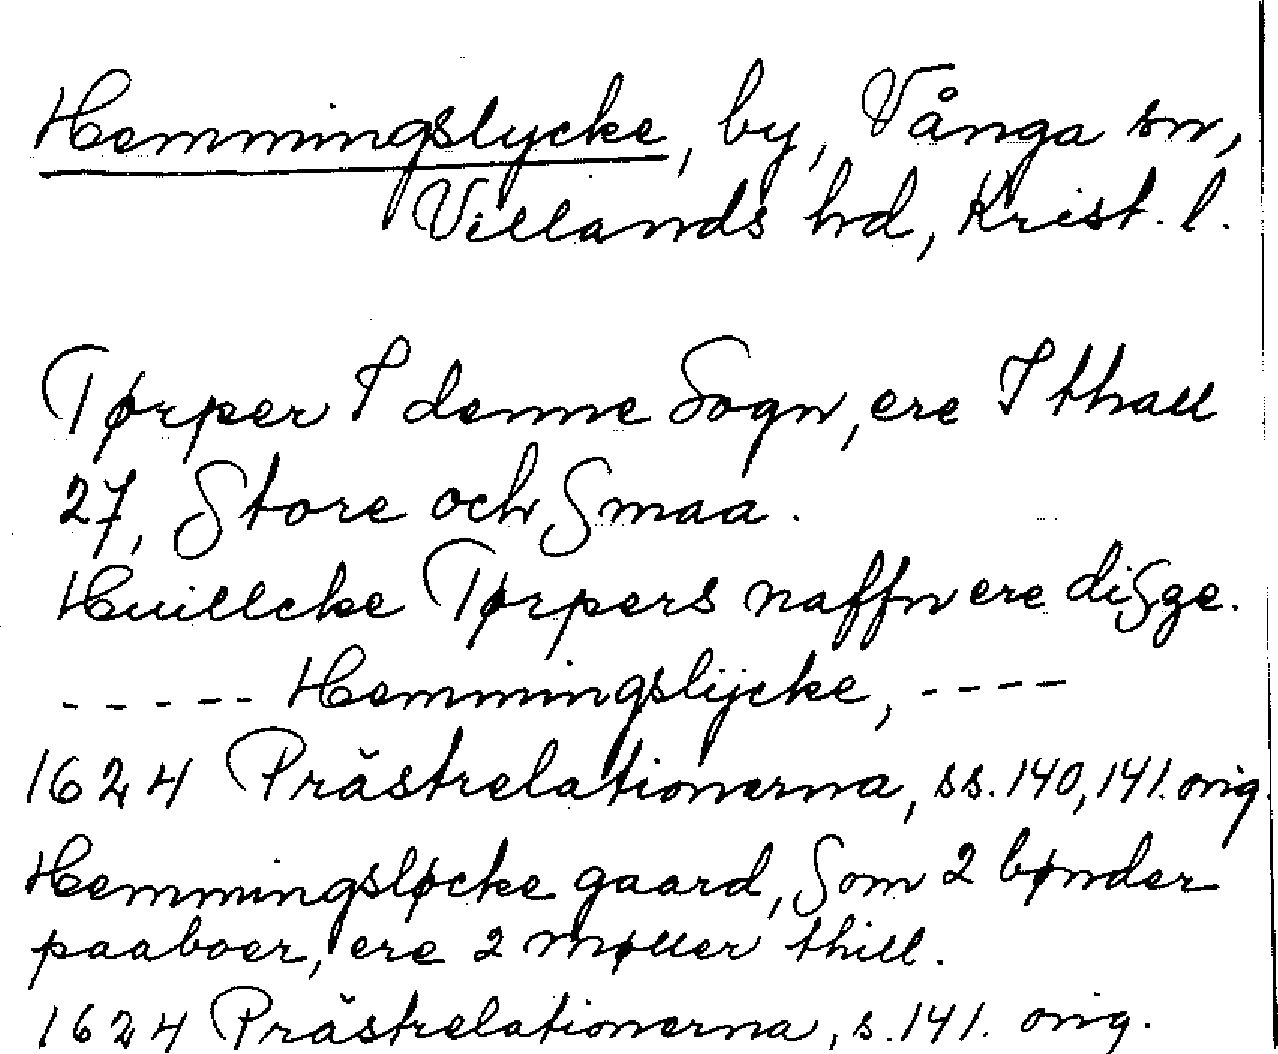 Hemmingslycke, by, Vånga sn,
Villands hd, Krist. l.
Tørper I denne Sogn, ere I thall
27, Store och Smaa.
Huillcke Tørpers naffn ere disse.
----- Hemmingslijcke, ----
1624 Prästrelationerna, ss. 140, 141. orig.
Hemmingsløcke gaard, Som 2 bønder
paaboer, ere 2 møller thill.
1624 Prästrelationerna, s. 141. orig.